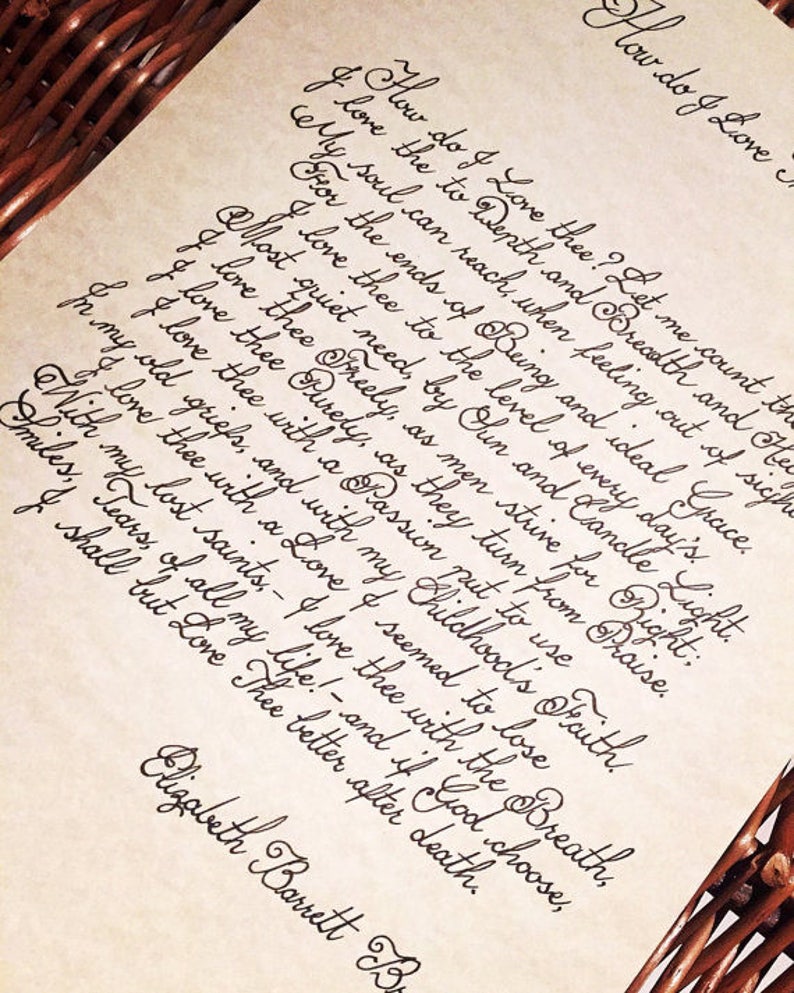 How do I Love
How do I Love thee? Let me count the
I love the to Depth and Breadth and Hei
My soul can reach, when feeling out of sight
For the ends of Being and ideal Grace.
I love thee to the level of every day's.
Most quiet need, by Sun and Candle Light.
I love thee Freely, as men strive for Right;
I love thee Purely, as they turn from Praise.
I love thee with a Passion put to use
In my old griefs, and with my Childhood's Faith.
I love thee with a Love I seemed to lose
With my lost saints,- I love thee with the Breath,
Smiles, Tears, of all my life!- and if God choose,
I shall but Love Thee better after death.
Elizabeth Barrett Br